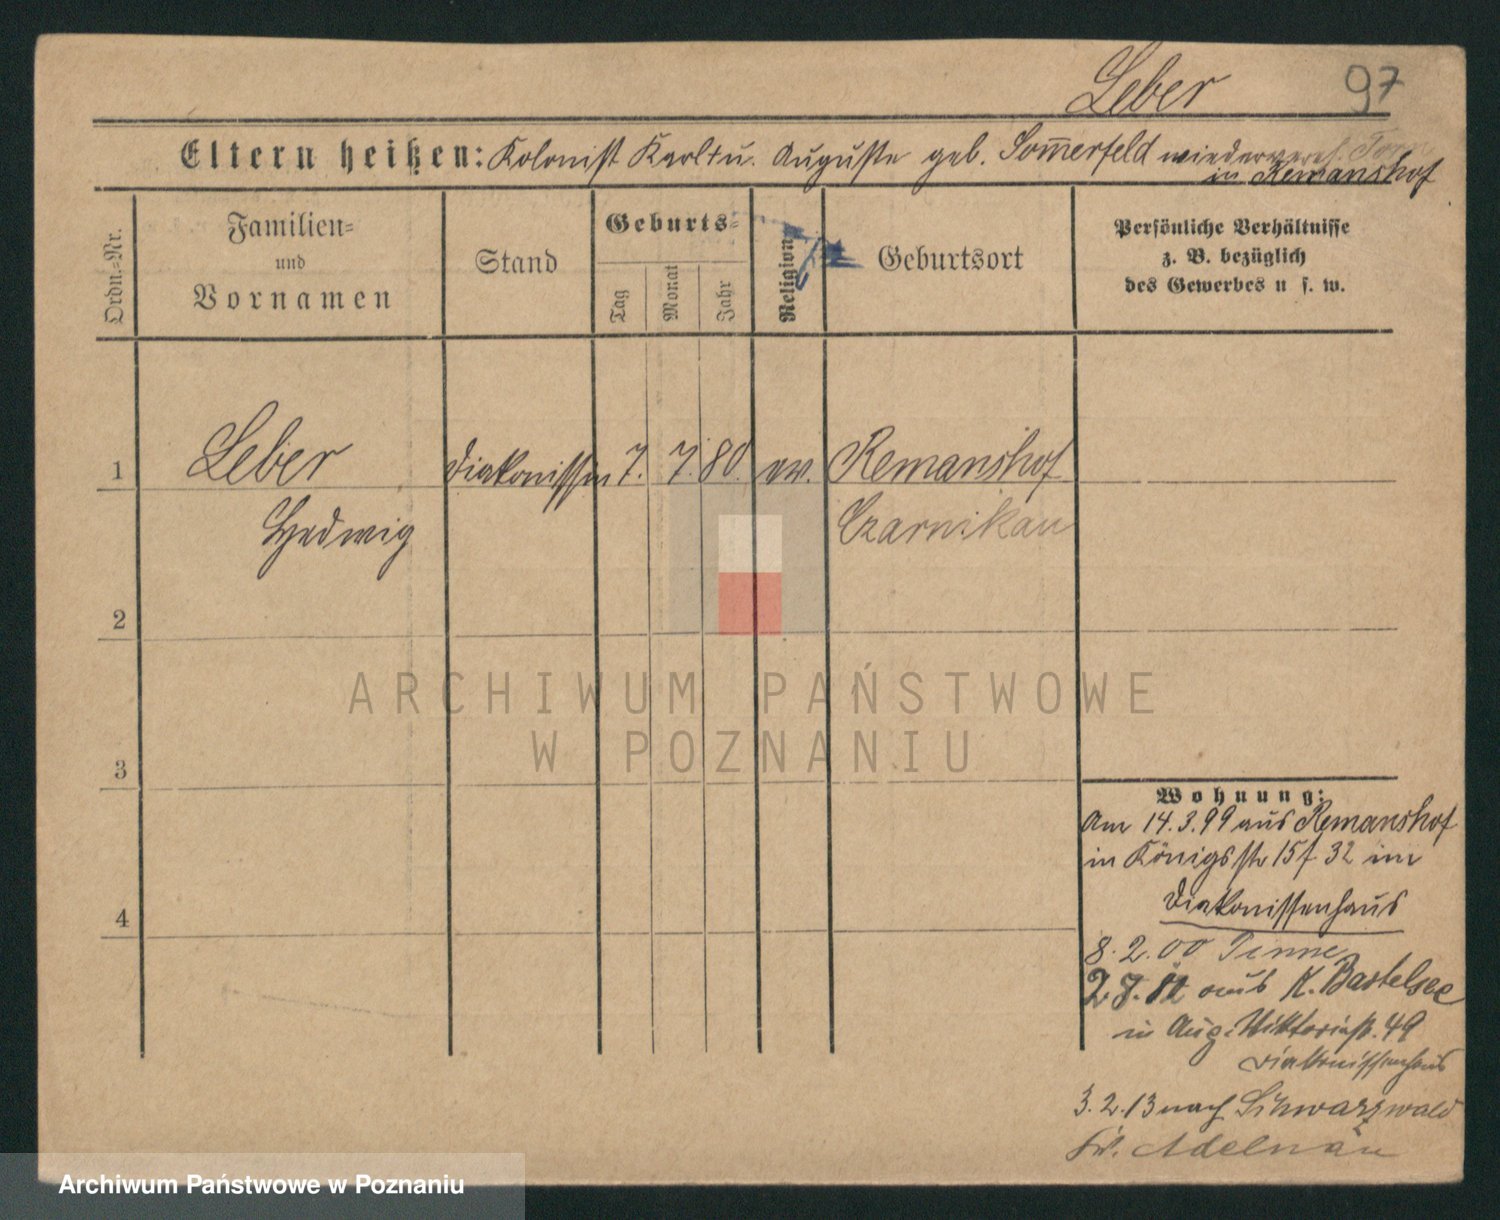 Leber 97
Eltern heißen: Kolonist Karl + u. Auguste geb. Som̅erfeld wiederverh.
in Remanshof
Ordn.=Nr.
Familien=
und
Vornamen
Stand
Geburts=
Tag
Monat
Jahr
Religion
Geburtsort
Persönliche Verhältnisse
z. B. bezüglich
des Gewerbes u s. w.
1 Leber Diakonissin 7. 7. 80. ev. Remanshof
Hedwig Czarnikau
2
3
4
Wohnung:
Am 14.3.99 aus Remanshof
in Königsstr 15 f 32 im
Diakonissenhaus
8.2.00 Pinne
aus K. Bartelsee
in Aug. Viktoriast. 49
Diakonissenhaus
3.2.13 nach Schwarzwald
Kr. Adelnau
ARCHIWUM PAŃSTWOWE
W POZNANIU
Archiwum Państwowe w Poznaniu